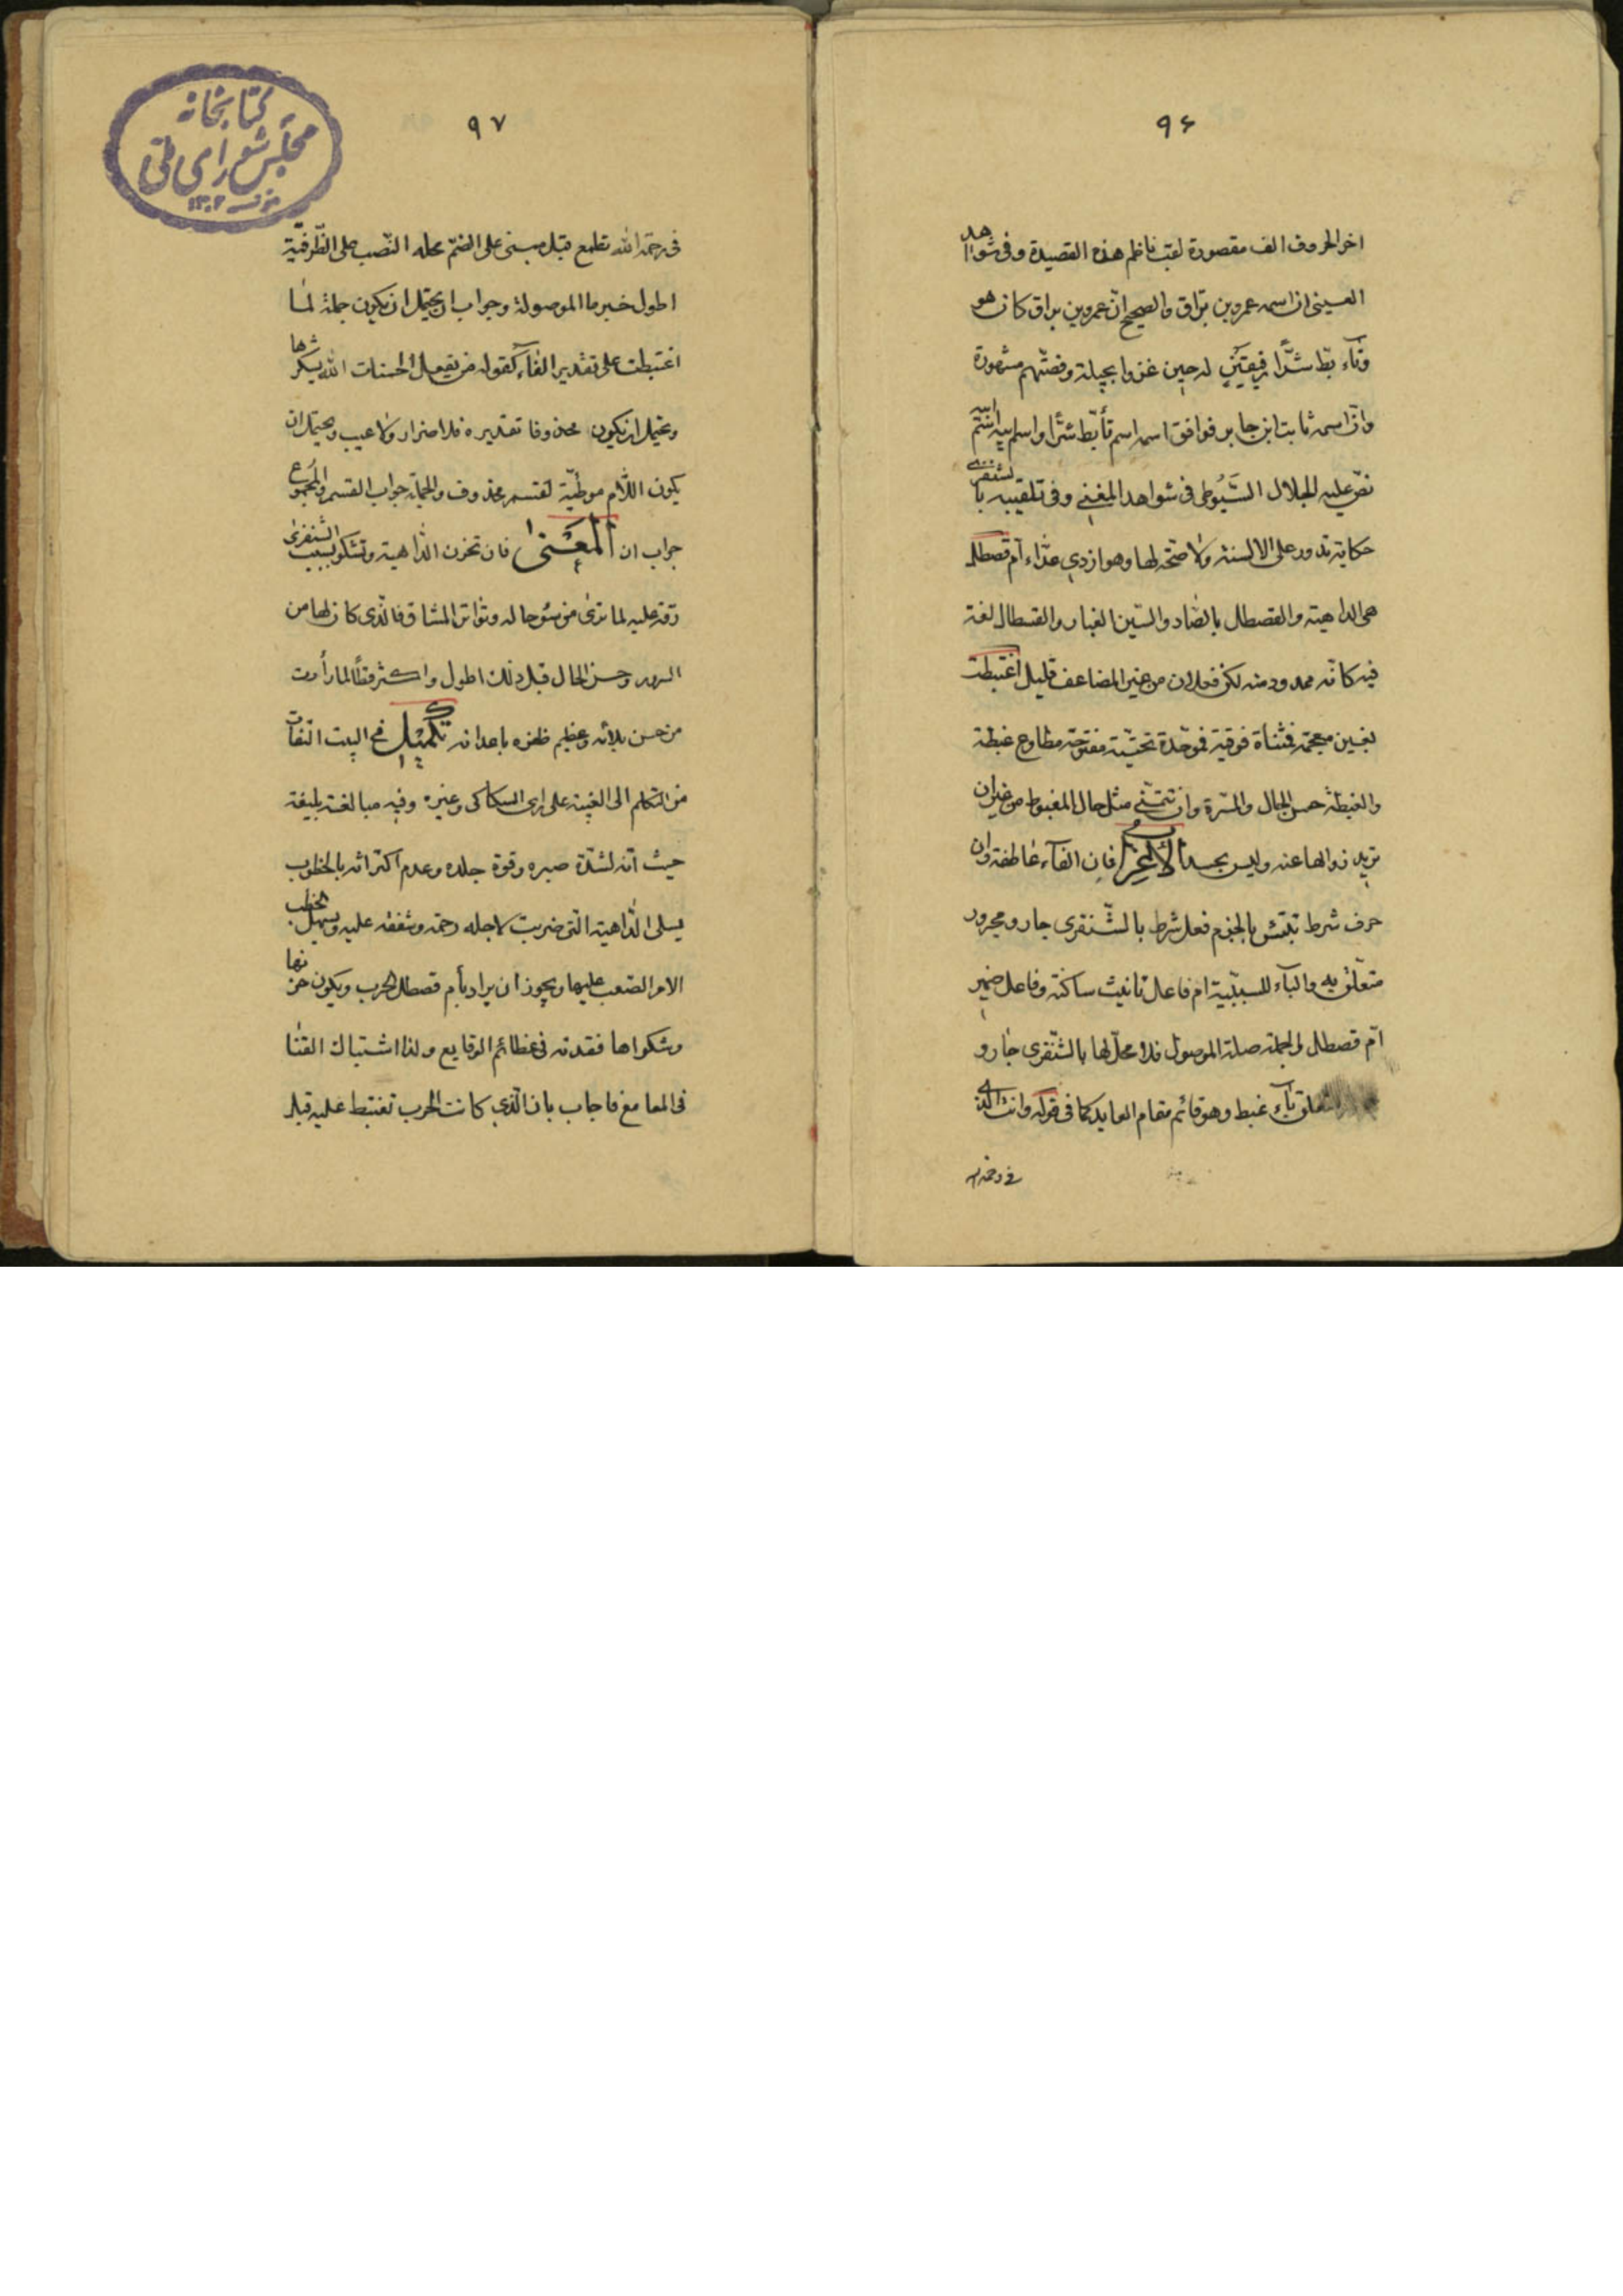 ۹۶
اخر الحروف الف مقصورة لقب ناظم هذه القصيدة وفى شواهد
العينى ان اسمه عمرو بن براق والصحيح انّ عمرو بن براق كان هو
وتأبّط شرًّا رفيقين له حين غزوا بجيلة وقصّتهم مشهورة
وانّ اسمه ثابت ابن جابر فوافق اسمه اسم تأبّط شرًّا واسم ابيه انتهى
نصّ عليه الجلال السّيوطى فى شواهد المغنى وفى تلقيبه بالشنفرى
حكاية تدور على الالسنة ولا صحّة لها وهو ازدى عدّاء امّ قصطل
هى الداهية والقصطال بالصّاد والسّين الغبار والقسطال لغة
فيه كانّه ممدود منه لكن فعلال من غير المضاعف قليل اغتبطت
بغين معجمة فمثناة فوقية فموحّدة تحتيّة مفتوحة مطاوع غبطة
والغبطة حسن الحال والمسّرة وان تتمنّى مثل حال المغبوط من غير ان
تريد زوالها عنه وليس بحسد الأعراب فان الفاء عاطفة وان
حرف شرط تبتئس بالجزم فعل شرط بالشّنفرى جار ومجرور
متعلّق به والباء للسببيّة ام فاعل تانيث ساكنة وفاعل ضمير
امّ قصطل والجملة صلة الموصول فلا محلّ لها بالشّنفرى جار و
غبط وهو قائم مقام العايد كما فى قوله وانت الذى
فى رحمة الله
۹۷
كتابخانه
مجلس شوراى ملى
فى رحمة الله تطمع قبل مبنى على الضمّ محله النّصب على الظّرفيّة
اطول خبر ما الموصولة وجواب ان يحتمل ان يكون جملة لما
اغتبطت على تقدير الفاء كقوله من يفعل الحسنات الله يشكرها
ويحتمل ان يكون محذوفا تقديره فلا ضرار ولا عيب ويحتمل ان
يكون اللّام موطئة لقسم محذوف والجملة جواب القسم والمجموع
جواب ان المعنى فان تحزن الدّاهية وتشكو بسبب الشنفرى
رقة عليه لما ترى من سوء حاله وتواتر المشاق فالّذى كان لها من
السرور وحسن الحال قبل ذلك اطول واكثر وقتًا لما رأت
من حسن بلائه وعظيم ظفره باعدائه تكميل فى البيت التفات
من التكلم الى الغيبة على راى السكاكى وغيره وفيه مبالغة بليغة
حيث انّه لشدّة صبره وقوة جلده وعدم اكتراثه بالخطوب
يسلى الدّاهية الّتى ضربت لاجله رحمة وشفقة عليه ويسهل الخطب
الامر الصّعب عليها ويجوز ان يراد بأم قصطل الحرب ويكون حزنها
وشكواها فقدته فى عظائم الوقايع ولذا اشتباك القنا
فى المعامع فاجاب بان الّذى كانت الحرب تغتبط عليه قبل